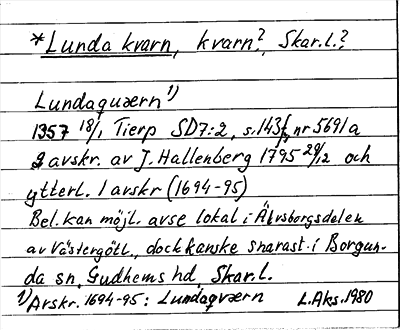 *Lunda kvarn, kvarn?, Skar.l.?
Lundaquærn¹⁾
1357 18/1 Tierp SD7:2, s.143f, nr 5691a
g avskr. av J. Hallenberg 1795 29/12 och
ytterl. 1 avskr (1694-95)
Bel. kan möjl. avse lokal i Älvsborgsdelen
av Västergötl., dock kanske snarast i Borgun-
da sn, Gudhems hd, Skar.l.
¹⁾Avskr. 1694-95: Lundaqværn L.Aks. 1980